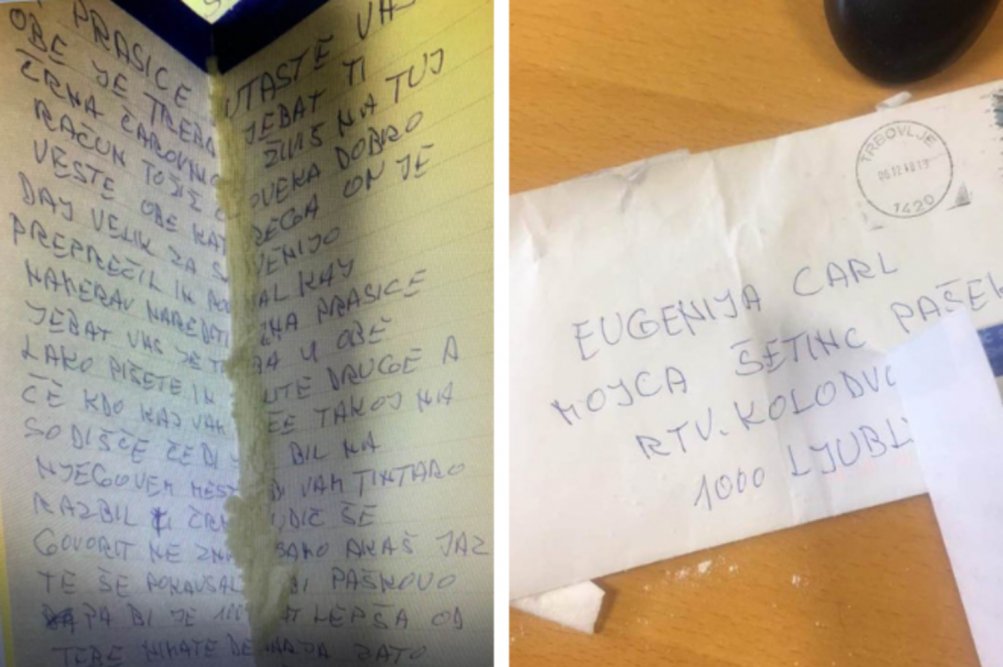 PRASICE UTASTE VAS
OBE JE TREBA JEBAT TI
ČRNA ČAROVNI ŽIVIŠ NA TUJ
RAČUN TOŽIŠ Č OVEKA DOBRO
VESTE OBE KAT REGA ON JE
DAJ VELIK ZA S VENIJO
PREPREČIL IN AL KAJ
NAMERAV NAREDIT PRASICE
JEBAT VAS JE TR BA U OBE
LAKO PIŠETE IN UTE DRUGE A
ČE KDO KAJ VAM ČE TAKOJ NA
SODIŠČE ČE BI BIL NA
NJEGOVEM MEST BI VAM TINTARO
RAZBIL ČRN UDIČ ŠE
GOVORIT NE ZNA SAMO AKAŠ JAZ
TE ŠE POKAVSAL BI PAŠKOVO
PA BI JE 100 LEPŠA OD
TEBE NIMATE DE ZATO
TRBOVLJE
06.12.18.13
1420
EUGENIJA CARL
MOJCA ŠETINC PAŠEK
RTV. KOLODVO
1000 LJUBLJ